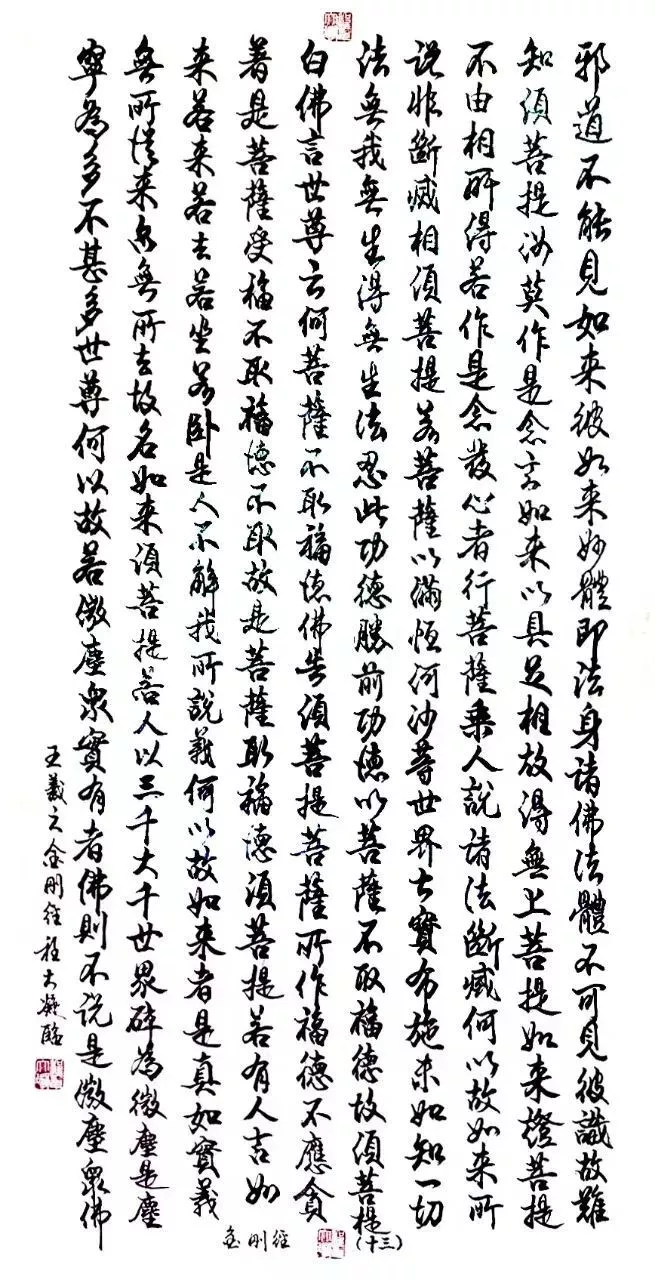 邪道不能見如来彼如来妙體即法身諸佛法體不可見彼識故難
知須菩提汝莫作是念言如来以具足相故得無上菩提如来證菩提
不由相所得若作是念發心者行菩薩乘人說諸法斷滅何以故如来所
说非斷滅相須菩提若菩薩以滿恒河沙等世界七寶布施未如知一切
法無我無生得無生法忍此功德勝前功德以菩薩不取福德故須菩提
白佛言世尊云何菩薩不取福德佛告須菩提菩薩所作福德不應貪
著是菩薩受福不取福德不取故是菩薩取福德須菩提若有人言如
来若来若去若坐若卧是人不解我所說義何以故如来者是真如實義
無所從来亦無所去故名如来須菩提若人以三千大千世界碎為微塵是塵
寧為多不甚多世尊何以故若微塵衆實有者佛則不说是微塵衆佛
王羲之金刚經程大凝臨
金刚經
(十三)